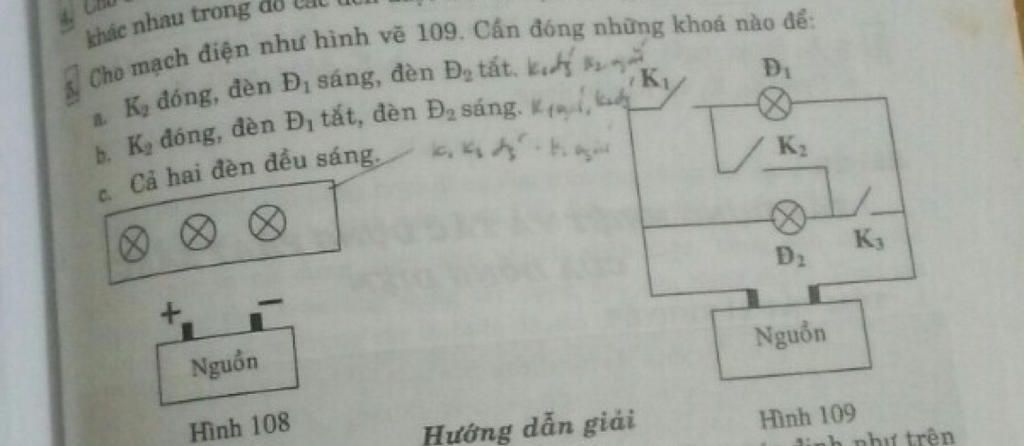 khác nhau trong đó các đèn
5. Cho mạch điện như hình vẽ 109. Cần đóng những khoá nào để:
a. K₂ đóng, đèn Đ₁ sáng, đèn Đ₂ tắt.
b. K₂ đóng, đèn Đ₁ tắt, đèn Đ₂ sáng.
c. Cả hai đèn đều sáng.
K₁
Đ₁
K₂
Đ₂
K₃
+ −
Nguồn
Nguồn
Hình 108
Hình 109
Hướng dẫn giải
định như trên